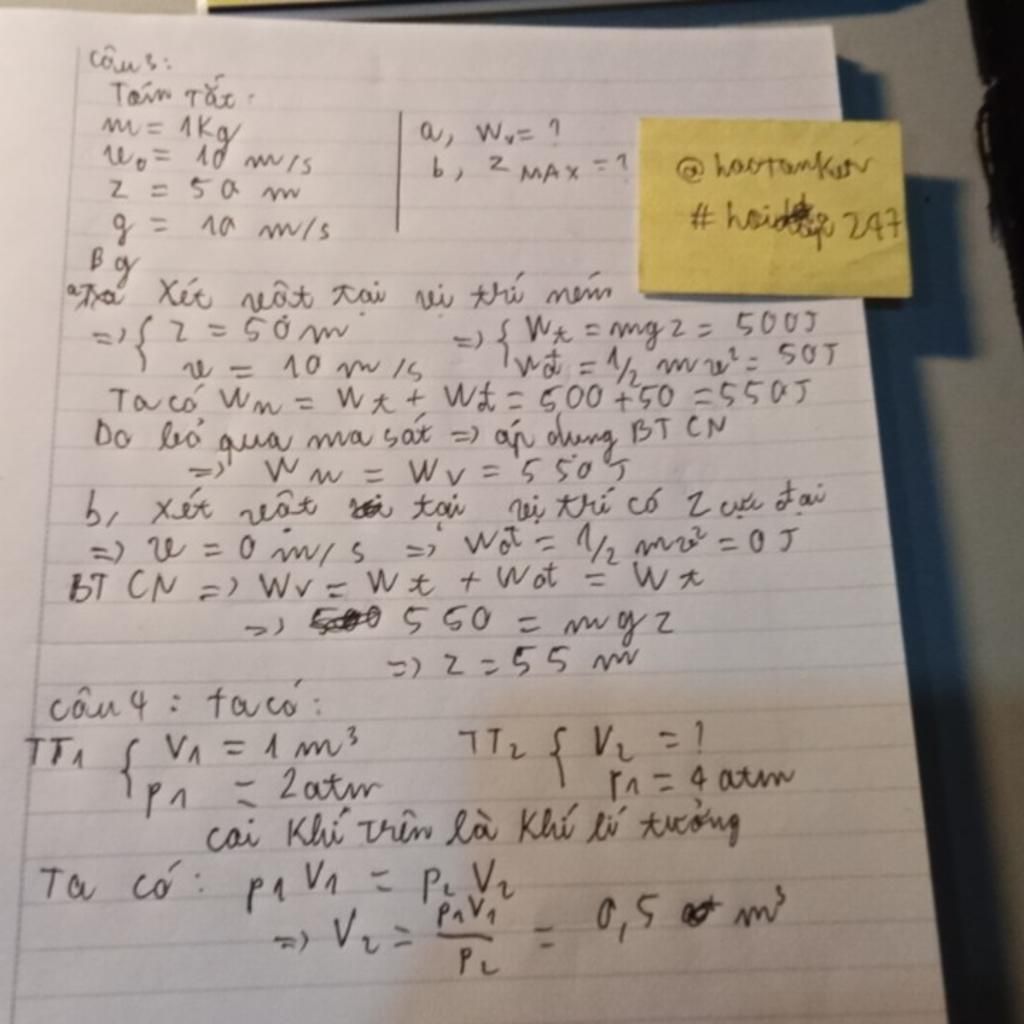 Câu 3:
Tóm Tắt:
m = 1Kg
v₀ = 10 m/s
z = 50 m
g = 10 m/s
a, Wv = ?
b, z MAX = ?
@haotanker
# hoidap 247
Bg
a, Xét vật tại vị trí ném
=> { z = 50 m
v = 10 m/s
=> { Wt = mgz = 500J
Wđ = 1/2 mv² = 50J
Ta có Wn = Wt + Wđ = 500 + 50 = 550J
Do bỏ qua ma sát => áp dụng BT CN
=> Wn = Wv = 550J
b, Xét vật tại vị trí có z cực đại
=> v = 0 m/s => Wđ = 1/2 mv² = 0J
BT CN => Wv = Wt + Wđ = Wt
=> 550 = mgz
=> z = 55 m
Câu 4: ta có:
TT₁ { V₁ = 1 m³
p₁ = 2atm
TT₂ { V₂ = ?
p₁ = 4 atm
coi Khí trên là Khí lí tưởng
Ta có: p₁V₁ = p₂V₂
=> V₂ = p₁V₁/p₂ = 0,5 m³